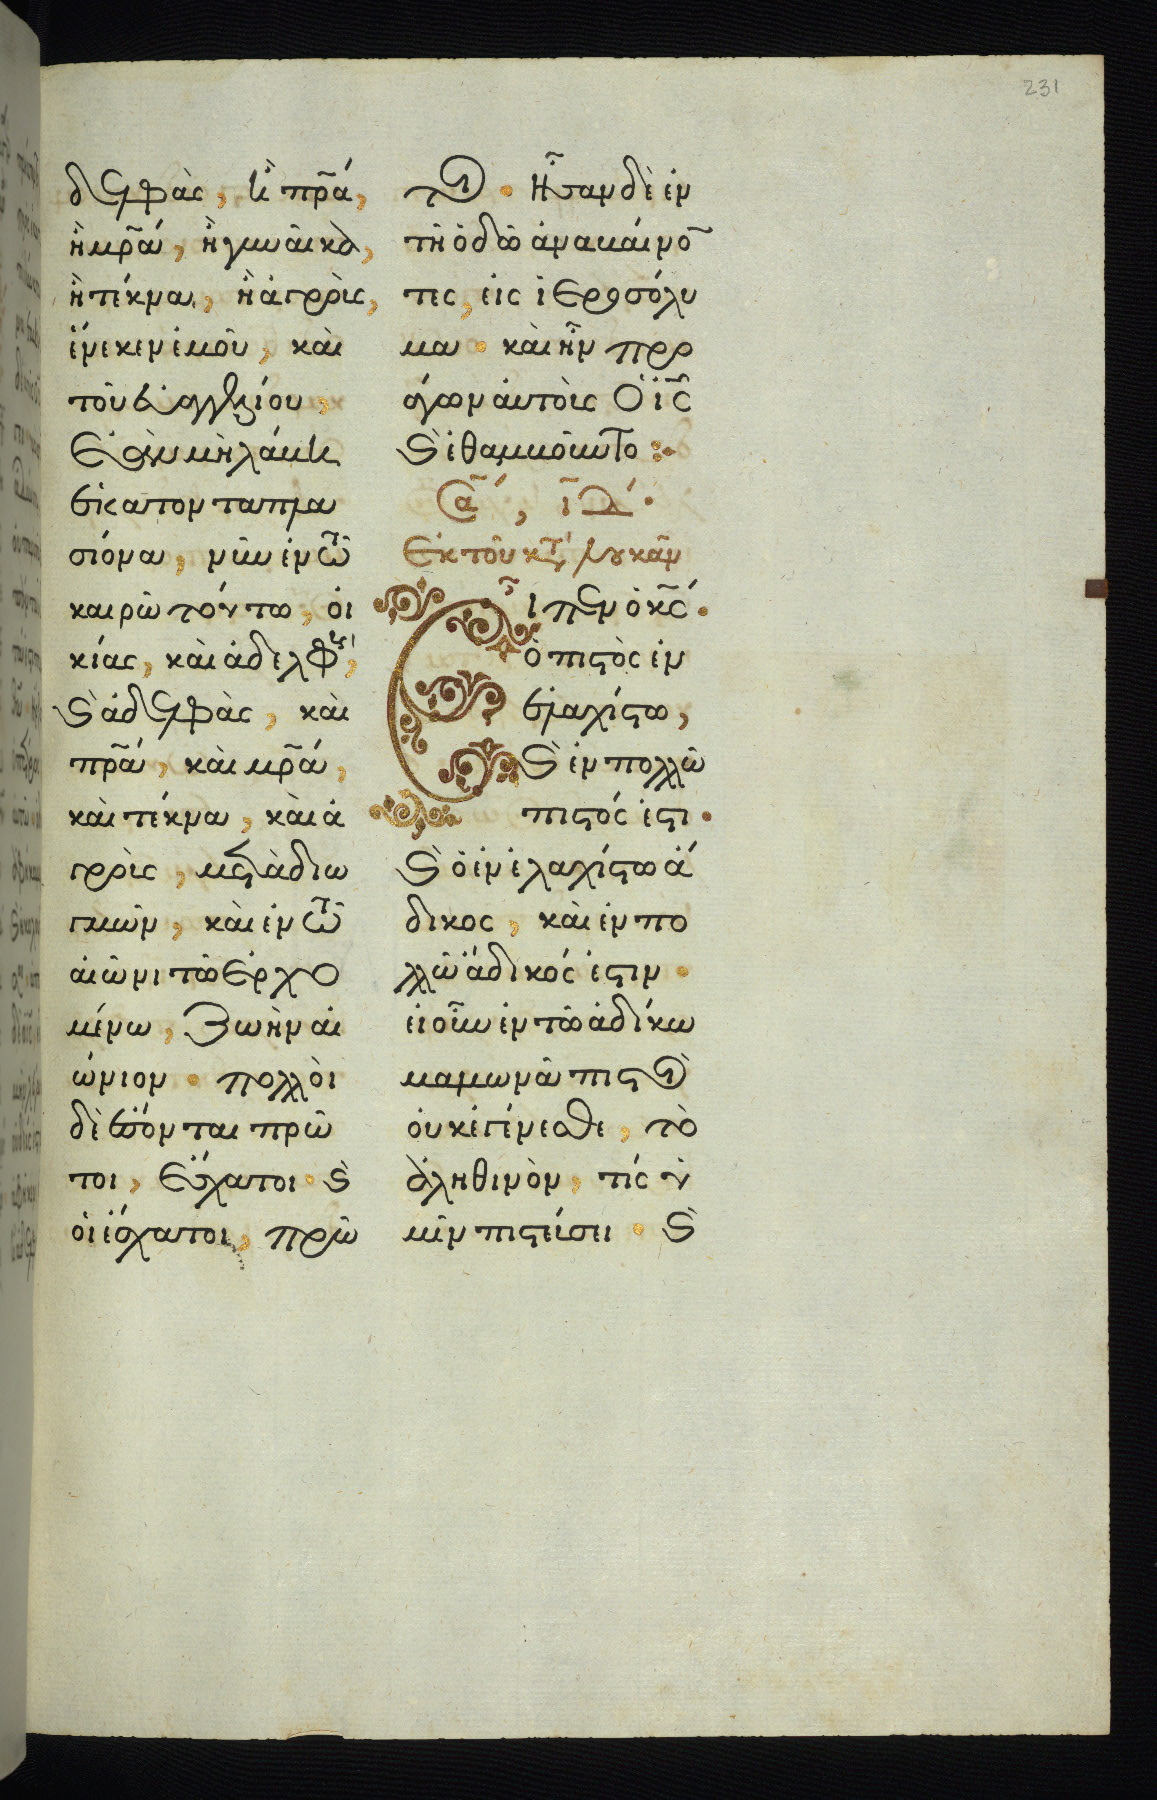 231
δελφὰς, ἢ πρ̅ά,
ἢ μρ̅α, ἢ γυναῖκα,
ἢ τέκνα, ἢ ἀγροὺς,
ἕνεκεν ἐμοῦ, καὶ
τοῦ εὐαγγελίου,
ἐὰν μὴ λάβῃ
ἑκατονταπλα
σίονα, νῦν ἐν τῶ
καιρῶ τούτω, οἰ
κίας, καὶ ἀδελφοὺς,
καὶ ἀδελφὰς, καὶ
πρ̅α, καὶ μρ̅α,
καὶ τέκνα, καὶ ἀ
γροὺς, μετὰ διω
γμῶν, καὶ ἐν τῶ
αἰῶνι τῶ ἐρχο
μένω, ζωὴν αἰ
ώνιον · πολλοὶ
δὲ ἔσονται πρῶ
τοι, ἔσχατοι · καὶ
οἱ ἔσχατοι, πρῶ
τοι · Ἦσαν δὲ ἐν
τῆ ὁδῶ ἀναβαίνο̅
τες, εἰς ἱεροσόλυ
μα · καὶ ἦν προ
άγων αὐτοὺς ὁ ι̅ς̅
καὶ ἐθαμβοῦντο :·
Σα̅, ιδ̅ ·
Ἐκ τοῦ κτ̅ λουκᾶν
Εἶπεν ὁ κς̅ ·
ὁ πιστὸς ἐν
ἐλαχίστω,
καὶ ἐν πολλῶ
πιστός ἐστι ·
καὶ ὁ ἐν ἐλαχίστω ἄ
δικος, καὶ ἐν πο
λλῶ ἄδικός ἐστιν ·
εἰ οὖν ἐν τῶ ἀδίκω
μαμωνᾶ πιστοὶ
οὐκ ἐγένεσθε, τὸ
ἀληθινὸν, τίς ὑ
μῖν πιστεύσει · καὶ